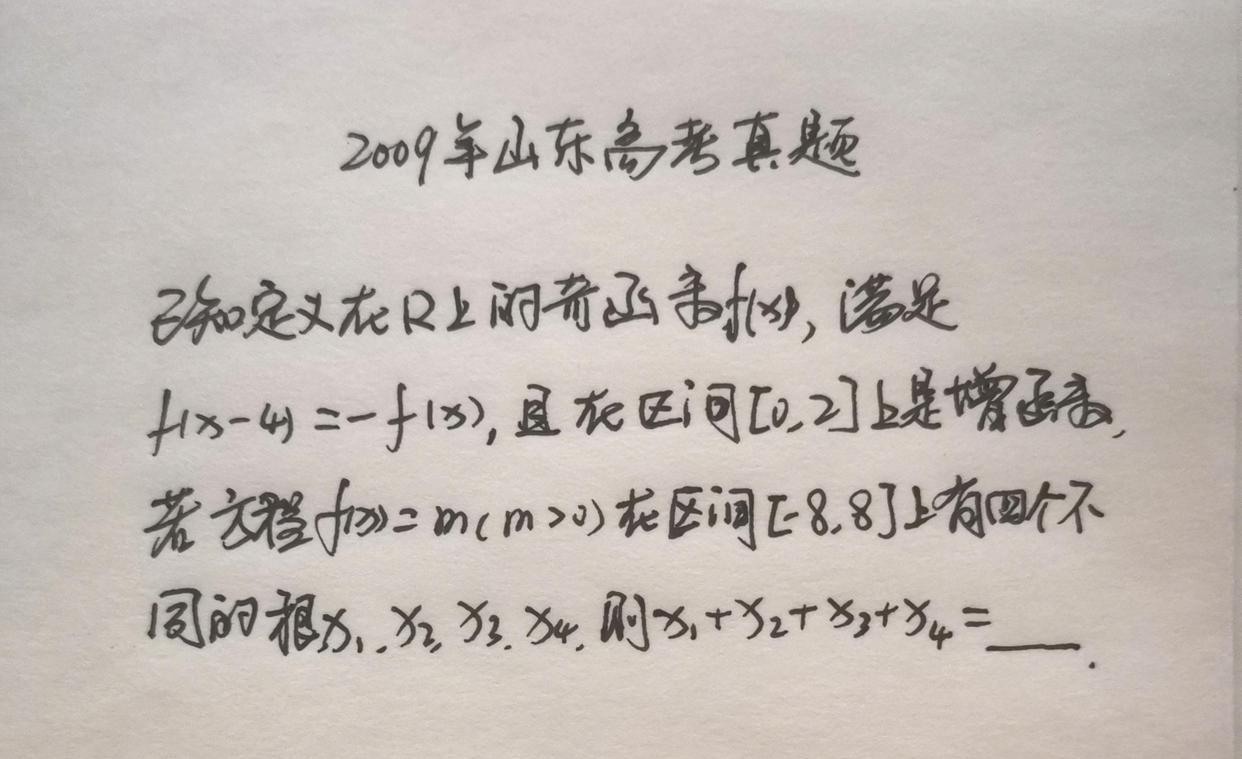 2009年山东高考真题
已知定义在R上的奇函数f(x),满足
f(x-4)=-f(x),且在区间[0,2]上是增函数,
若方程f(x)=m(m>0)在区间[-8,8]上有四个不
同的根x₁、x₂、x₃、x₄,则x₁+x₂+x₃+x₄=___.